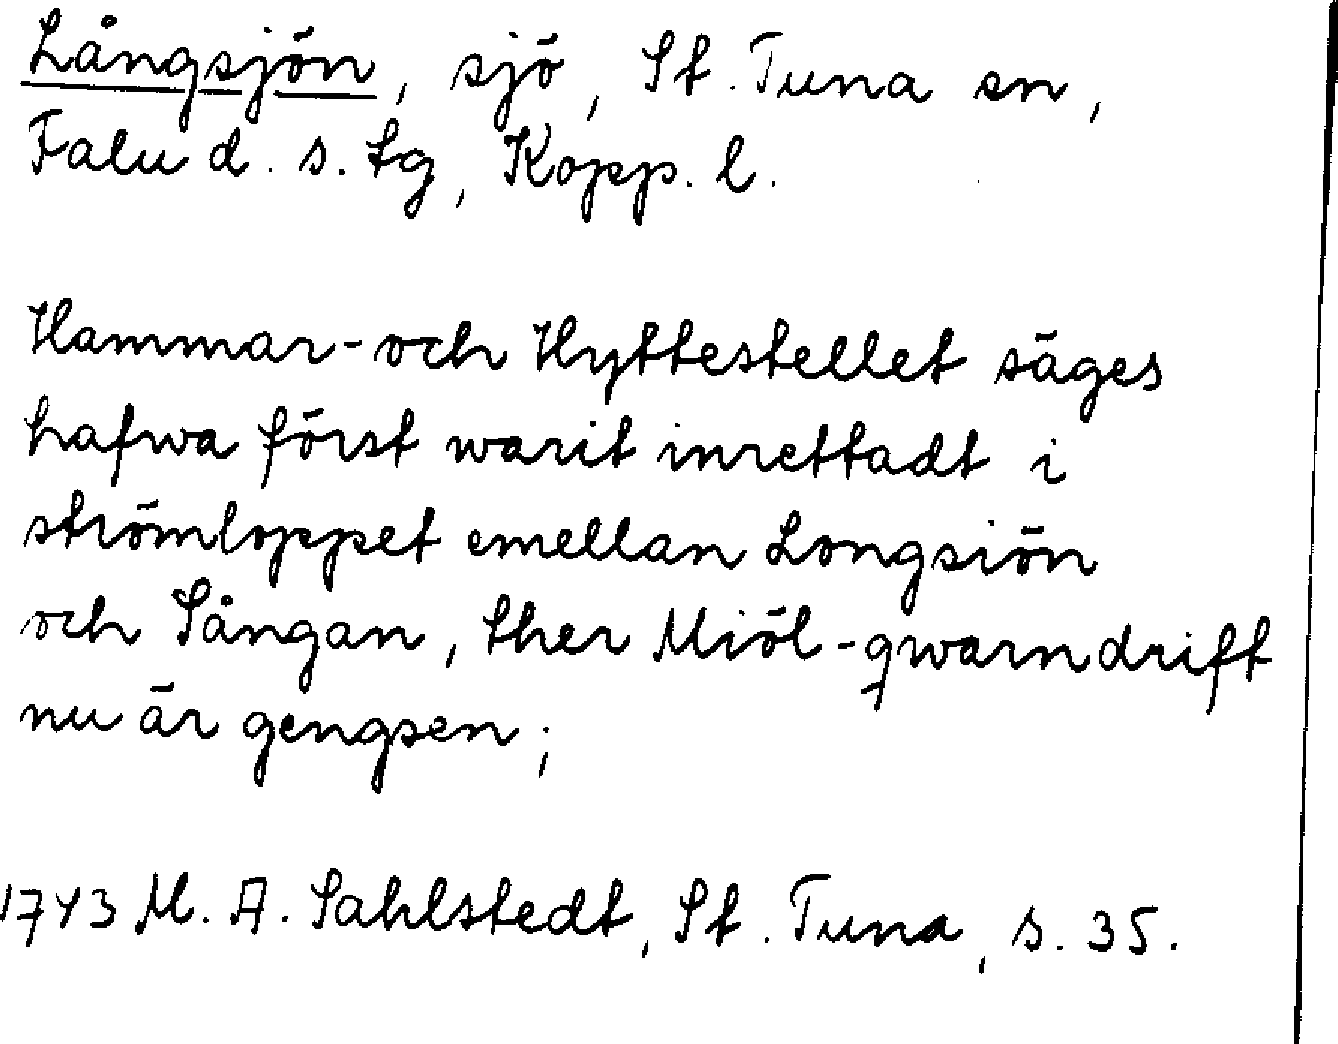 Långsjön, sjö, St. Tuna sn,
Falu d. s. tg, Kopp. l.
Hammar- och Hyttestellet säges
hafwa först warit inrettadt i
strömloppet emellan Longsiön
och Sången, ther Miöl-qwarndrift
nu är gengsen;
1743 M. A. Sahlstedt, St. Tuna, s. 35.